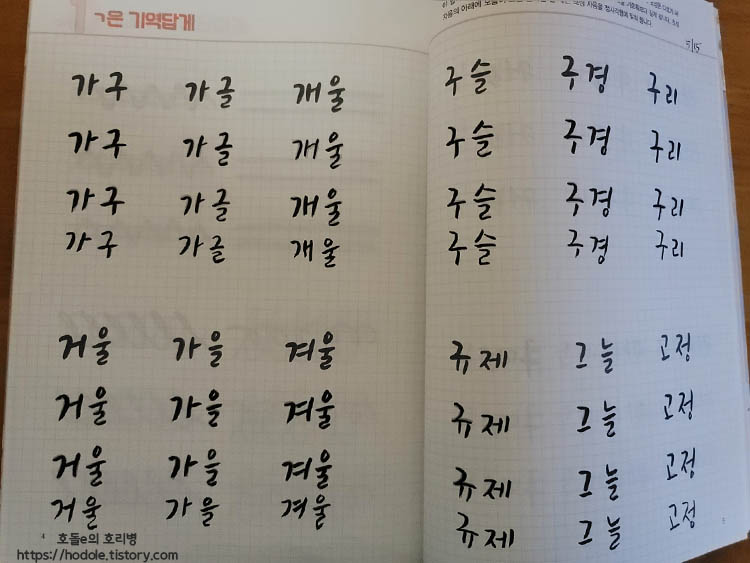 1 ㄱ은 기역답게
가구 가글 개울
가구 가글 개울
가구 가글 개울
가구 가글 개울
거울 가을 겨울
거울 가을 겨울
거울 가을 겨울
거울 가을 겨울
4
호돌e의 호리병
https://hodole.tistory.com
자음의 아래에 모음이
5/15
구슬 구경 구리
구슬 구경 구리
구슬 구경 구리
구슬 구경 구리
규제 그늘 고정
규제 그늘 고정
규제 그늘 고정
규제 그늘 고정
5